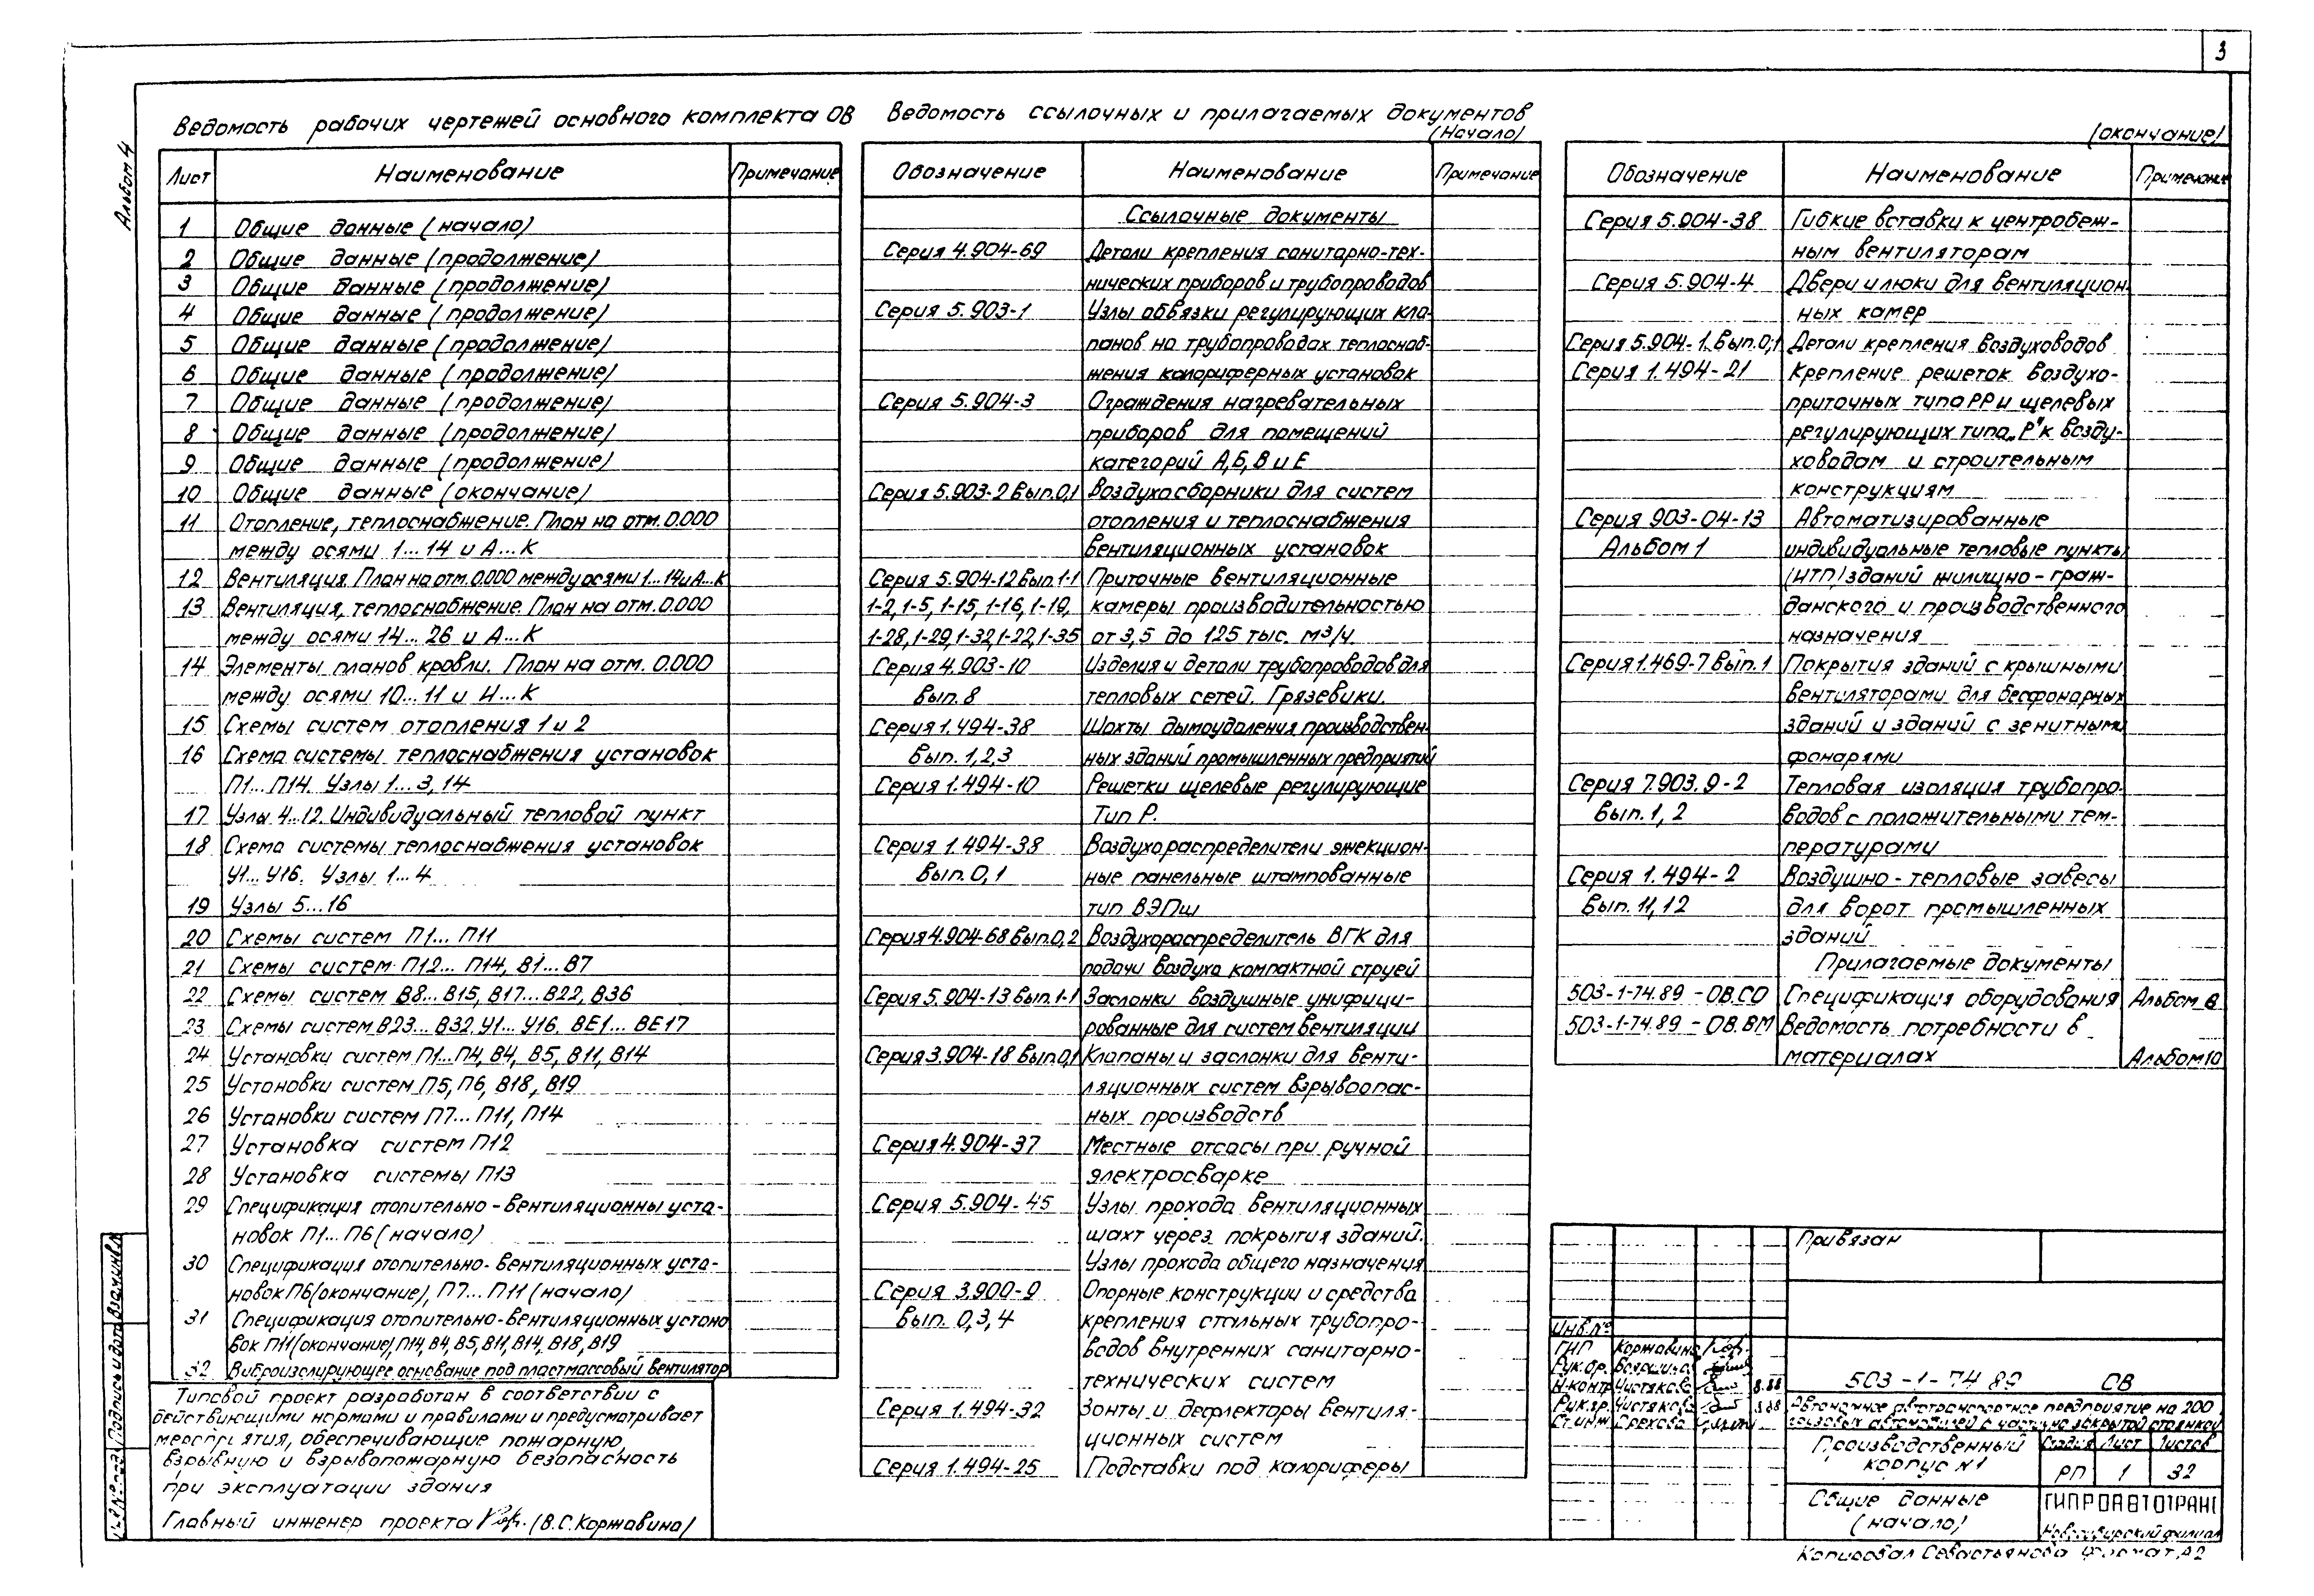 3
Альбом 4
Ведомость рабочих чертежей основного комплекта ОВ
Лист Наименование Примечание
1 Общие данные (начало)
2 Общие данные (продолжение)
3 Общие данные (продолжение)
4 Общие данные (продолжение)
5 Общие данные (продолжение)
6 Общие данные (продолжение)
7 Общие данные (продолжение)
8 Общие данные (продолжение)
9 Общие данные (продолжение)
10 Общие данные (окончание)
11 Отопление, теплоснабжение. План на отм. 0.000
между осями 1...14 и А...К
12 Вентиляция. План на отм. 0.000 между осями 1...14 и А...К
13 Вентиляция, теплоснабжение. План на отм. 0.000
между осями 14...26 и А...К
14 Элементы планов кровли. План на отм. 0.000
между осями 10...11 и И...К
15 Схемы систем отопления 1 и 2
16 Схема системы теплоснабжения установок
П1...П14. Узлы 1...3, 14
17 Узлы 4...12. Индивидуальный тепловой пункт
18 Схема системы теплоснабжения установок
У1...У16. Узлы 1...4
19 Узлы 5...16
20 Схемы систем П1...П11
21 Схемы систем П12...П14, В1...В7
22 Схемы систем В8...В15, В17...В22, В36
23 Схемы систем В23...В32, У1...У16, ВЕ1...ВЕ17
24 Установки систем П1...П4, В4, В5, В11, В14
25 Установки систем П5, П6, В18, В19
26 Установки систем П7...П11, П14
27 Установка систем П12
28 Установка системы П13
29 Спецификация отопительно-вентиляционны уста-
новок П1...П6 (начало)
30 Спецификация отопительно-вентиляционных уста-
новок П6 (окончание), П7...П11 (начало)
31 Спецификация отопительно-вентиляционных устано
вок П11 (окончание), П14, В4, В5, В11, В14, В18, В19
32 Виброизолирующее основание под пластмассовый вентилятор
Типовой проект разработан в соответствии с
действующими нормами и правилами и предусматривает
мероприятия, обеспечивающие пожарную,
взрывную и взрывопожарную безопасность
при эксплуатации здания
Главный инженер проекта (В.С. Коржавина)
Ведомость ссылочных и прилагаемых документов
(Начало)
Обозначение Наименование Примечание
Ссылочные документы
Серия 4.904-69 Детали крепления санитарно-тех-
нических приборов и трубопроводов
Серия 5.903-1 Узлы обвязки регулирующих кла-
панов на трубопроводах теплоснаб-
жения калориферных установок
Серия 5.904-3 Ограждения нагревательных
приборов для помещений
категорий А, Б, В и Е
Серия 5.903-2 Вып.0,1 Воздухосборники для систем
отопления и теплоснабжения
вентиляционных установок
Серия 5.904-12 Вып.1-1 Приточные вентиляционные
1-2, 1-5, 1-15, 1-16, 1-19, камеры производительностью
1-28, 1-29, 1-32, 1-22, 1-35 от 3,5 до 125 тыс. м3/ч
Серия 4.903-10 Изделия и детали трубопроводов для
Вып. 8 тепловых сетей. Грязевики.
Серия 1.494-38 Шахты дымоудаления производствен-
Вып. 1,2,3 ных зданий промышленных предприятий
Серия 1.494-10 Решетки щелевые регулирующие
Тип Р.
Серия 1.494-38 Воздухораспределители эжекцион-
Вып. 0,1 ные панельные штампованные
тип ВЭПш
Серия 4.904-68 Вып.0,2 Воздухораспределитель ВГК для
подачи воздуха компактной струей
Серия 5.904-13 Вып.1-1 Заслонки воздушные унифици-
рованные для систем вентиляции
Серия 3.904-18 Вып.0,1 Клапаны и заслонки для венти-
ляционных систем взрывоопас-
ных производств
Серия 4.904-37 Местные отсосы при ручной
электросварке
Серия 5.904-45 Узлы прохода вентиляционных
шахт через покрытия зданий.
Узлы прохода общего назначения
Серия 3.900-9 Опорные конструкции и средства
Вып. 0,3,4 крепления стальных трубопро-
водов внутренних санитарно-
технических систем
Серия 1.494-32 Зонты и дефлекторы вентиля-
ционных систем
Серия 1.494-25 Подставки под калориферы
(окончание)
Обозначение Наименование Примечание
Серия 5.904-38 Гибкие вставки к центробеж-
ным вентиляторам
Серия 5.904-4 Двери и люки для вентиляцион-
ных камер
Серия 5.904-1. Вып.0,1 Детали крепления воздуховодов
Серия 1.494-21 Крепление решеток воздухо-
приточных типа РР и щелевых
регулирующих типа „Р" к возду-
ховодам и строительным
конструкциям
Серия 903-04-13 Автоматизированные
Альбом 1 индивидуальные тепловые пункты
(ИТП) зданий жилищно-граж-
данского и производственного
назначения
Серия 1.469-7 Вып.1 Покрытия зданий с крышными
вентиляторами для бесфонарных
зданий и зданий с зенитными
фонарями
Серия 7.903.9-2 Тепловая изоляция трубопро-
Вып. 1, 2 водов с положительными тем-
пературами
Серия 1.494-2 Воздушно-тепловые завесы
Вып. 11, 12 для ворот промышленных
зданий
Прилагаемые документы
503-1-74.89 - ОВ.СО Спецификация оборудования Альбом 8
503-1-74.89 - ОВ.ВМ Ведомость потребности в
материалах Альбом 10
Привязан
Инв.№
ГИП Коржавина
Рук.ор.
Н.контр Чистякова 8.88
Рук.гр. Чистякова 8.88
Ст.инж. Орехова
503-1-74 89 ОВ
Автономное автотранспортное предприятие на 200
грузовых автомобилей с частично закрытой стоянкой
Производственный корпус №1
Стадия Лист Листов
РП 1 32
Общие данные
(начало)
ГИПРОАВТОТРАНС
Новосибирский филиал
Копировал Севастьянова Формат А2
Подпись и дата
Взам.инв.№